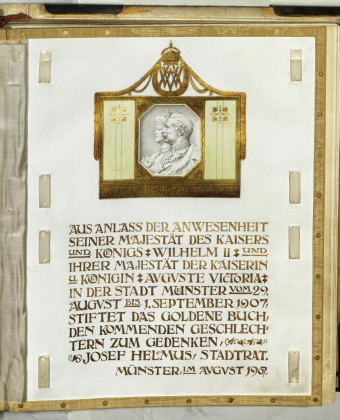 AUS ANLASS DER ANWESENHEIT
SEINER MAJESTÄT DES KAISERS
UND KÖNIGS WILHELM II UND
IHRER MAJESTÄT DER KAISERIN
U KÖNIGIN AVGVSTE VICTORIA
IN DER STADT MÜNSTER VOM 29.
AVGVST BIS 1. SEPTEMBER 1907,
STIFTET DAS GOLDENE BUCH,
DEN KOMMENDEN GESCHLECH-
TERN ZUM GEDENKEN,
JOSEF HELMUS, STADTRAT.
MÜNSTER, IM AVGVST 1907.